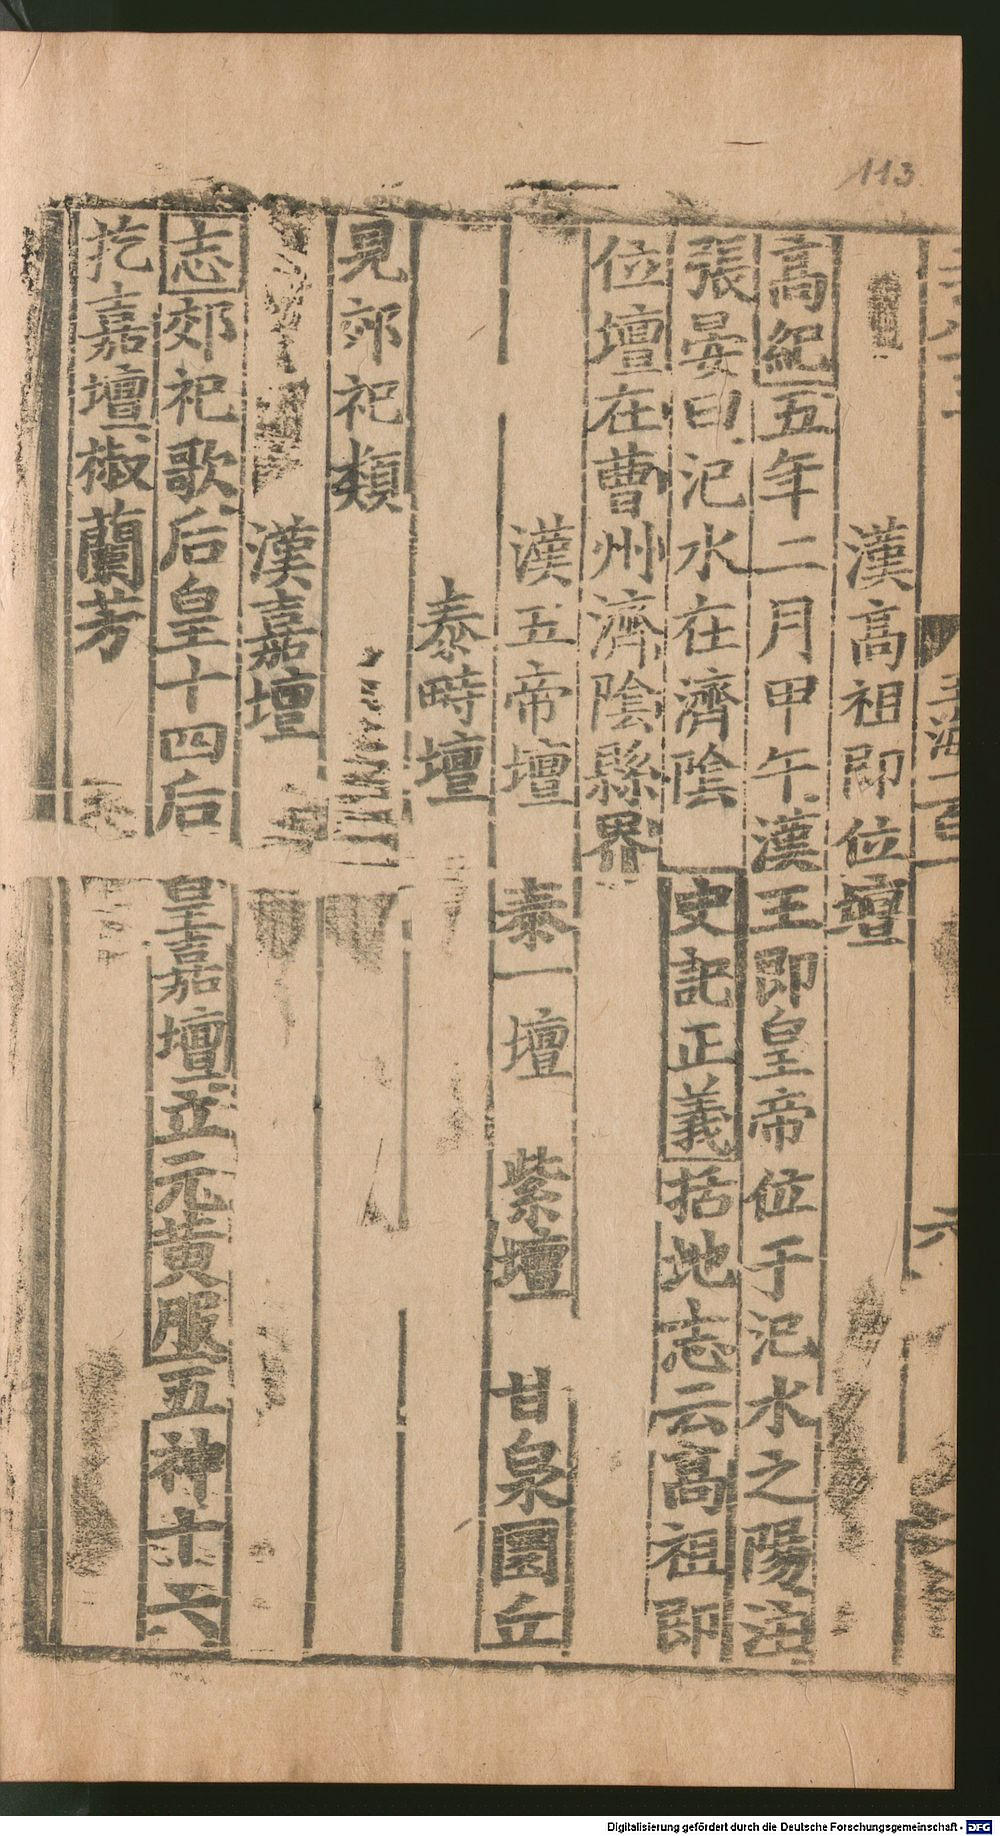 113
玉海一百一
六
漢高祖即位壇
高紀五年二月甲午漢王即皇帝位于汜水之陽注
張晏曰汜水在濟陰 史記正義括地志云高祖即
位壇在曹州濟陰縣界
漢五帝壇 泰一壇 紫壇 甘泉圜丘
泰畤壇
見郊祀類
漢嘉壇
志郊祀歌后皇十四后皇嘉壇立元黃服五神十六
扢嘉壇椒蘭芳
Digitalisierung gefördert durch die Deutsche Forschungsgemeinschaft - DFG